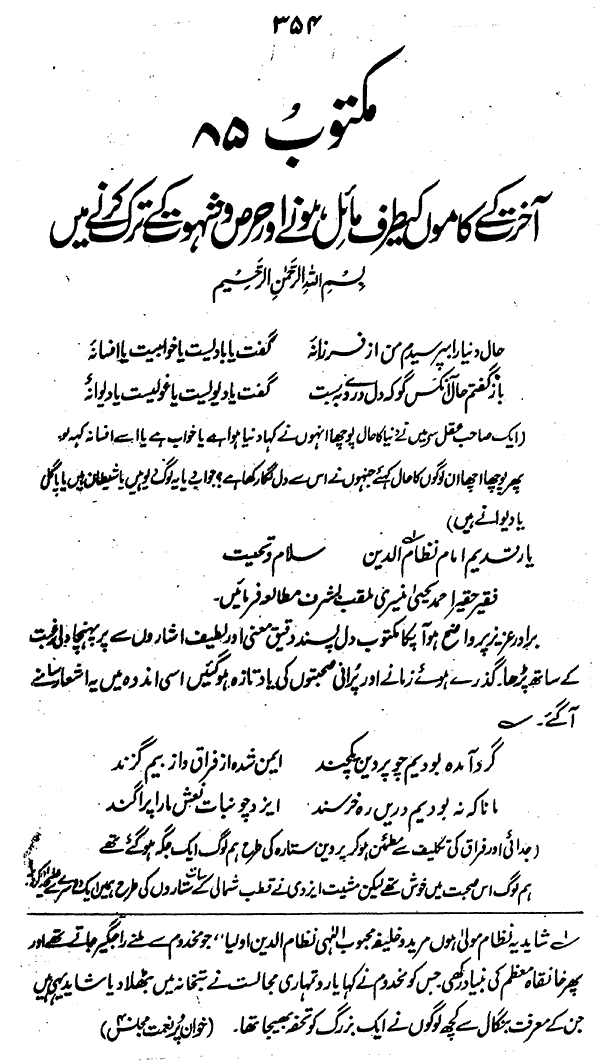 ۳۵۴
مکتوب ۸۵
آخرت کے کاموں کیطرف مائل ہونے اور حرص و شہوت کے ترک کرنے میں
بسم اللہ الرحمٰن الرحیم
حال دنیا را بپرسیدم من از فرزانہ گفت یا بادیست یا خوابیست یا افسانہ
باز گفتم حال آنکس گو کہ دل دروے بہ بست گفت یا دیولیت یا غولیست یا دیوانہ
(ایک صاحب عقل سے میں نے دنیا کا حال پوچھا انہوں نے کہا دنیا ہوا ہے یا خواب ہے یا اسے افسانہ کہہ لو۔
پھر پوچھا اچھا ان لوگوں کا حال کہئے جنہوں نے اس سے دل لگا رکھا ہے؟ جواب یا یہ لوگ دیو ہیں یا شیطان ہیں یا پاگل
یا دیوانے ہیں)
یار قدیم امام نظام الدین سلام و تحیت
فقیر حقیر احمد یحییٰ منیری ملقب بشرف مطالعہ فرمائیں۔
برادر عزیز پر واضح ہو آپکا مکتوب دل پسند دقیق معنی اور لطیف اشاروں سے پر پہنچا دلی رغبت
کے ساتھ پڑھا۔ گذرے ہوئے زمانے اور پرانی صحبتوں کی یاد تازہ ہوگئیں اسی اندہ میں یہ اشعار سامنے
آگئے۔
گرد آمدہ بودیم چو پردین یکچند ایمن شدہ از فراق و از بیم گزند
مانا کہ نہ بودیم دریں رہ خرسند ایزد چو نبات نعش مارا پراگند
(جدائی اور فراق کی تکلیف سے مطمئن ہو کر پردین ستارہ کی طرح ہم لوگ ایک جگہ ہوگئے تھے
ہم لوگ اس صحبت میں خوش تھے لیکن مشیت ایزدی نے قطب شمالی کے سات ستاروں کی طرح ہمیں ایک دوسرے سے
؂ شاید یہ نظام مولیٰ ہوں مرید و خلیفہ محبوب الٰہی نظام الدین اولیا" جو مخدوم سے ملنے راجگیر جاتے تھے اور
پھر خانقاہ معظم کی بنیاد رکھی، جس کو مخدوم نے کہا یارو تمہاری مجالست نے بتخانہ میں بٹھلا دیا شاید یہی ہیں
جن کے معرفت بنگال سے کچھ لوگوں نے ایک بزرگ کو تحفہ بھیجا تھا۔ (خوان پر نعمت مجلس ۴)